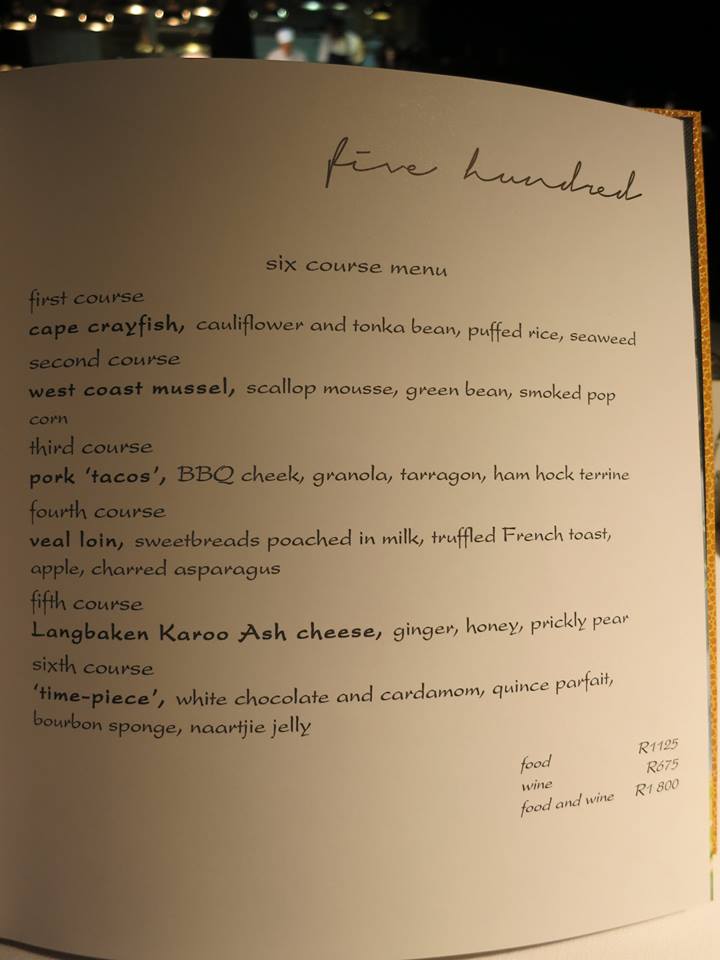 five hundred
six course menu
first course
cape crayfish, cauliflower and tonka bean, puffed rice, seaweed
second course
west coast mussel, scallop mousse, green bean, smoked pop
corn
third course
pork 'tacos', BBQ cheek, granola, tarragon, ham hock terrine
fourth course
veal loin, sweetbreads poached in milk, truffled French toast,
apple, charred asparagus
fifth course
Langbaken Karoo Ash cheese, ginger, honey, prickly pear
sixth course
'time-piece', white chocolate and cardamom, quince parfait,
bourbon sponge, naartjie jelly
food R1125
wine R675
food and wine R1 800